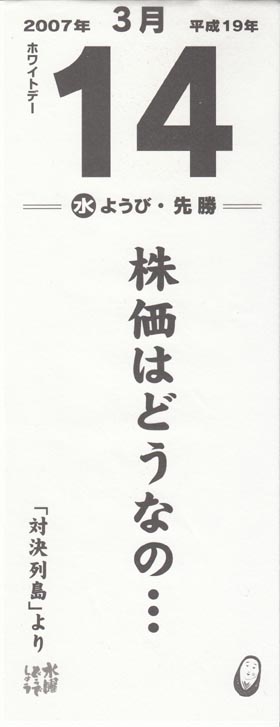 2007年 3月 平成19年
ホワイトデー
14
水ようび・先勝
株価はどうなの…
「対決列島」より
水曜
どうで
しょう